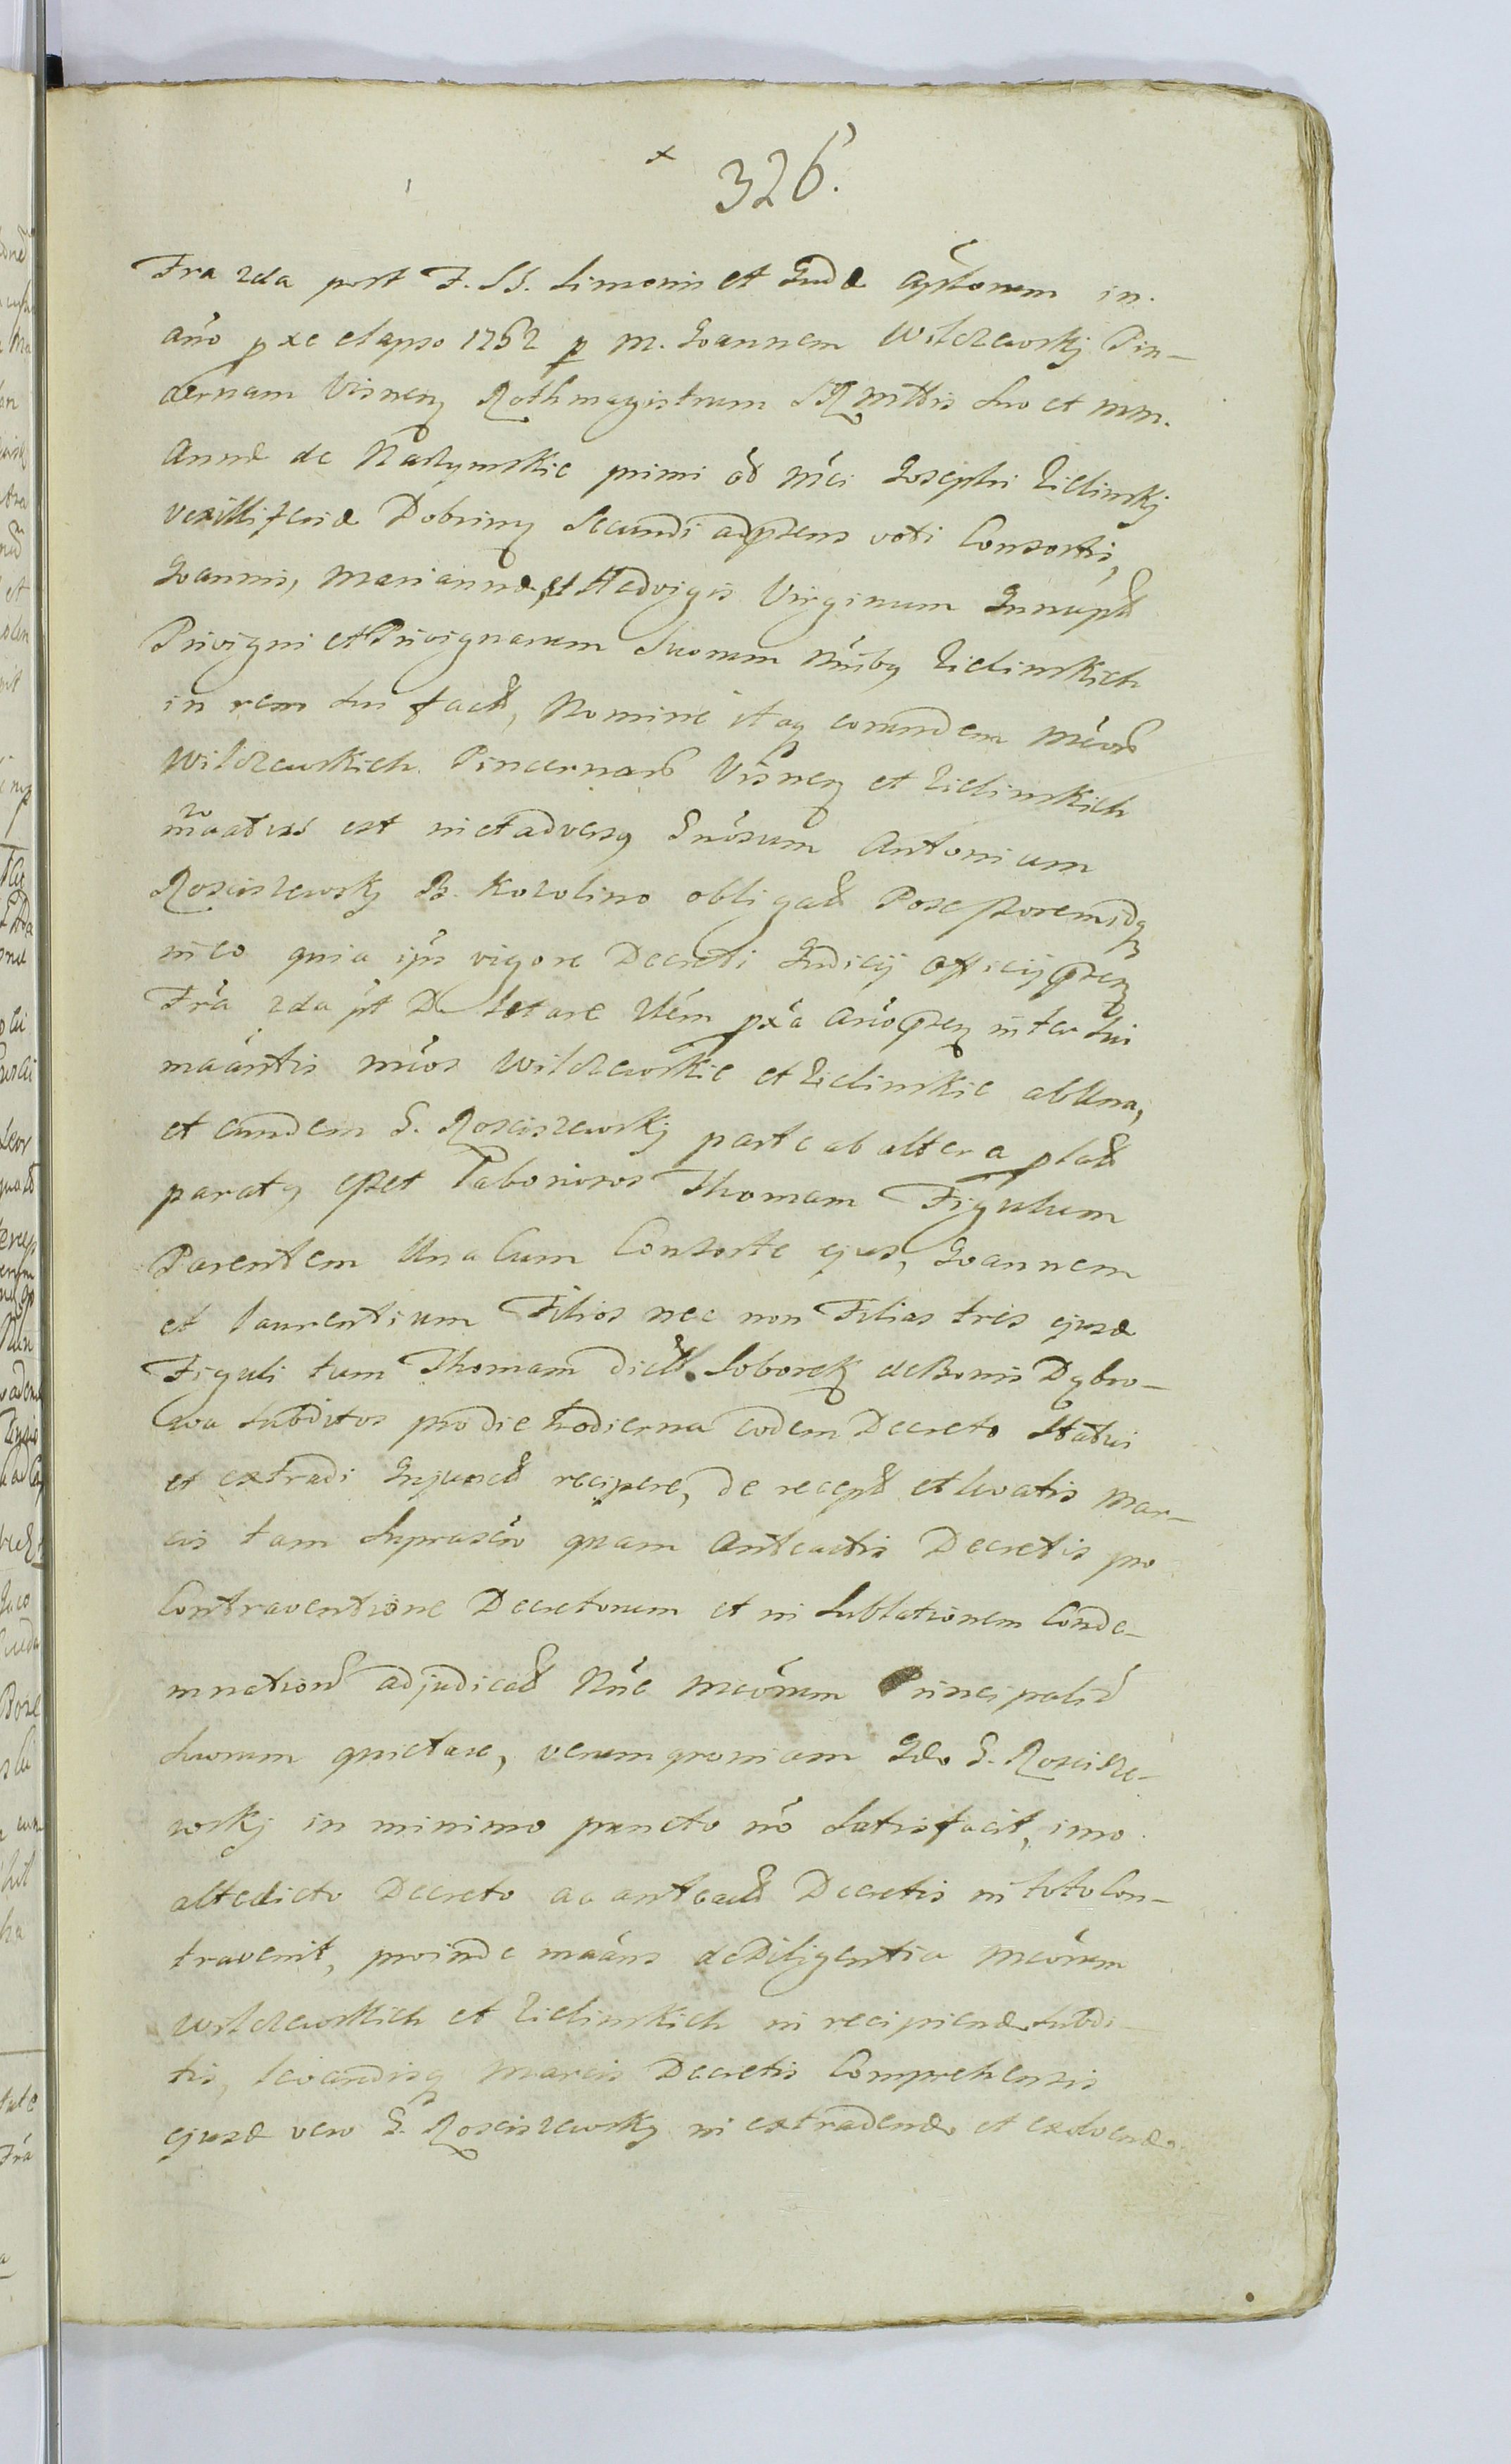 x
326.
Fra 2da post F. SS. Simonis et Judæ aplorum in.
anô pxe elapso 1762 p M. Joannem Wilczewskj Pin-
cernam Visnen Rothmagistrum SRMttis Suo et MM.
Annæ de Naszymskie primi ôd Mci Josephi Zielinskj
vexilliferiæ Dobrinen Secundi adpræns voti Consortis,
Joannis, Mariannæ, et Hedvigis Virginum Innupt
Privigni et Privignarum Suorum Nnibq Zielinskich
in rem Sui fact, Nomine itaq eorundem Mcor
Wilczewskich Pincernar Visnen et Zielinskich
mâatus est in et adversq Gnosum Antonium
Rosciszewskj B. Kozolino obligat Possessoremq
in eo quia ipse vigore Decreti Judicij Officij præn
Frâ 2da pt D Letare Item pxâ anô præn inter Sui
maântis Mcos Wilczewskie et Zielinskie ab Una,
et eundem G. Rosciszewskj parte ab altera plat
paratq esset Laboriosos Thomam Figulum
Parentem Una Cum Consorte ejus, Joannem
et Laurentium Filios nec non Filias tres ejusd
Figuli tum Thomam dict Soborek de Bonis Dębro-
wa Subditos pro die hodierna eodem Decreto Statui
et extradi Injunct recipere, de recept et levatis Mar-
cis tam Suprascô quam Anteactis Decretis pro
Contraventione Decretorum et in Sublationem Conde-
mnation adjudicat Nnê Mcorum Principaliu
Suorum quietare, verum quoniam Idô G. Roscisze-
wskj in minimo puncto nô Satisfacit, imo
altedicto Decreto ac anteact Decretis in toto Con-
travenit, proinde maâns de Diligentia Mcorum
Wilczewskich et Zielinskich in recipiend Subdi-
tis, levandisq Marcis Decretis Comprehensis
ejusd vero G. Rosciszewskj in extradend et exolvend